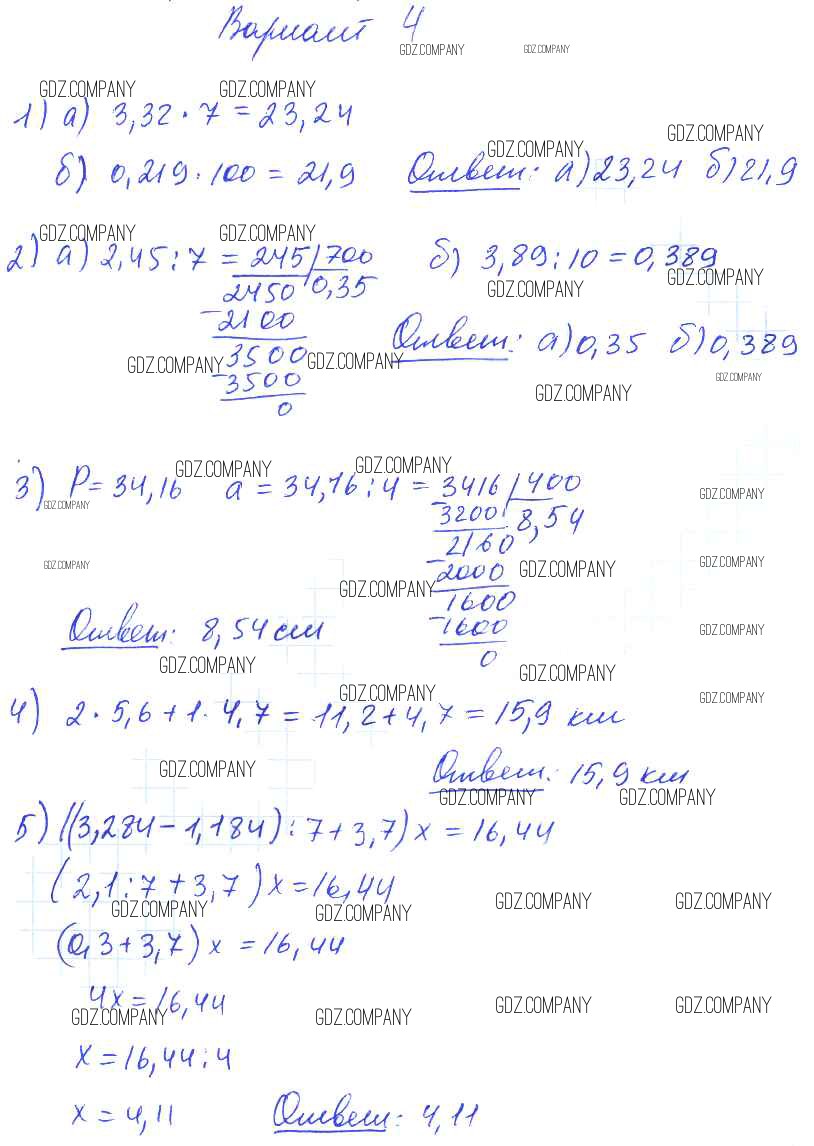 Вариант 4
GDZ.COMPANY GDZ.COMPANY
GDZ.COMPANY GDZ.COMPANY
1) а) 3,32 · 7 = 23,24
GDZ.COMPANY GDZ.COMPANY
б) 0,219 · 100 = 21,9 Ответ: а) 23,24 б) 21,9
GDZ.COMPANY GDZ.COMPANY
2) а) 2,45 : 7 = 245 | 700 б) 3,89 : 10 = 0,389
GDZ.COMPANY GDZ.COMPANY
2450 0,35
- 2100 Ответ: а) 0,35 б) 0,389
3500
GDZ.COMPANY GDZ.COMPANY GDZ.COMPANY
- 3500 GDZ.COMPANY
0
GDZ.COMPANY GDZ.COMPANY
3) P = 34,16 a = 34,16 : 4 = 3416 | 400
GDZ.COMPANY GDZ.COMPANY
3200 8,54
2160
GDZ.COMPANY GDZ.COMPANY
- 2000 GDZ.COMPANY GDZ.COMPANY
1600
Ответ: 8,54 см - 1600 GDZ.COMPANY
0
GDZ.COMPANY GDZ.COMPANY
GDZ.COMPANY GDZ.COMPANY
4) 2 · 5,6 + 1 · 4,7 = 11,2 + 4,7 = 15,9 км
GDZ.COMPANY Ответ: 15,9 км
GDZ.COMPANY GDZ.COMPANY
5) ((3,284 - 1,184) : 7 + 3,7) x = 16,44
(2,1 : 7 + 3,7) x = 16,44
GDZ.COMPANY GDZ.COMPANY GDZ.COMPANY GDZ.COMPANY
(0,3 + 3,7) x = 16,44
4x = 16,44
GDZ.COMPANY GDZ.COMPANY GDZ.COMPANY GDZ.COMPANY
x = 16,44 : 4
x = 4,11 Ответ: 4,11